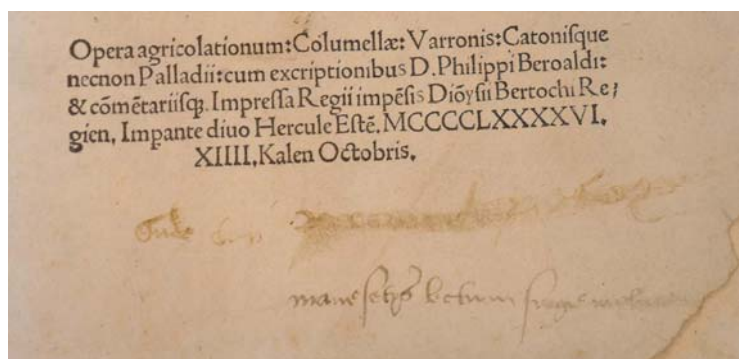 Opera agricolationum: Columellæ: Varronis: Catoniſque
necnon Palladii: cum excriptionibus D. Philippi Beroaldi:
& cōmētariiſq;. Impreſſa Regii impēſis Diōyſii Bertochi Re;
gien, Impante diuo Hercule Eſtē. MCCCCLXXXXVI.
XIIII. Kalen Octobris.
lectum